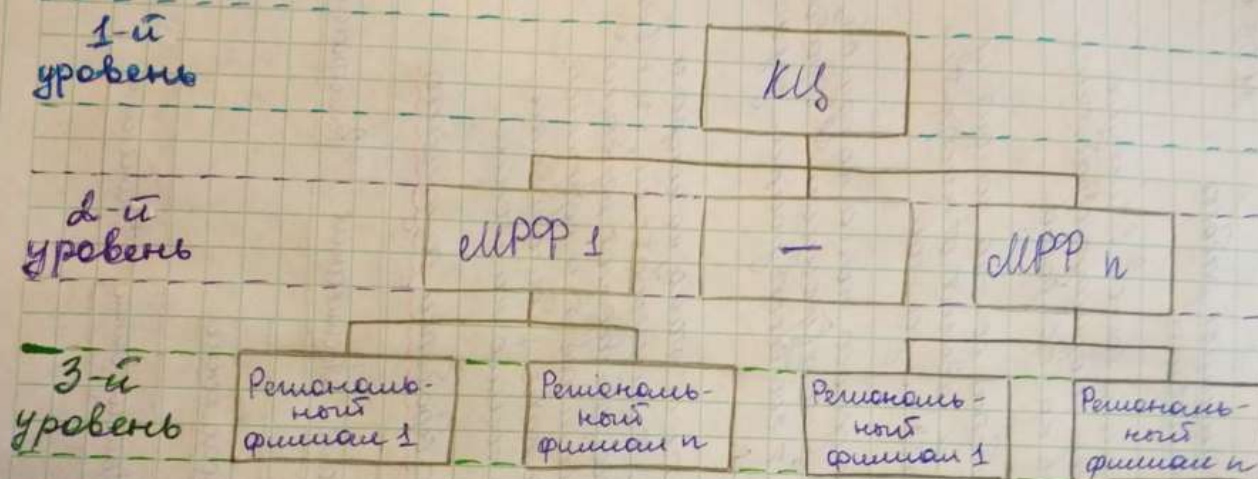 1-й
уровень
КЦ
2-й
уровень
МРФ 1
—
МРФ n
3-й
уровень
Региональ-
ный
филиал 1
Региональ-
ный
филиал n
Региональ-
ный
филиал 1
Региональ-
ный
филиал n